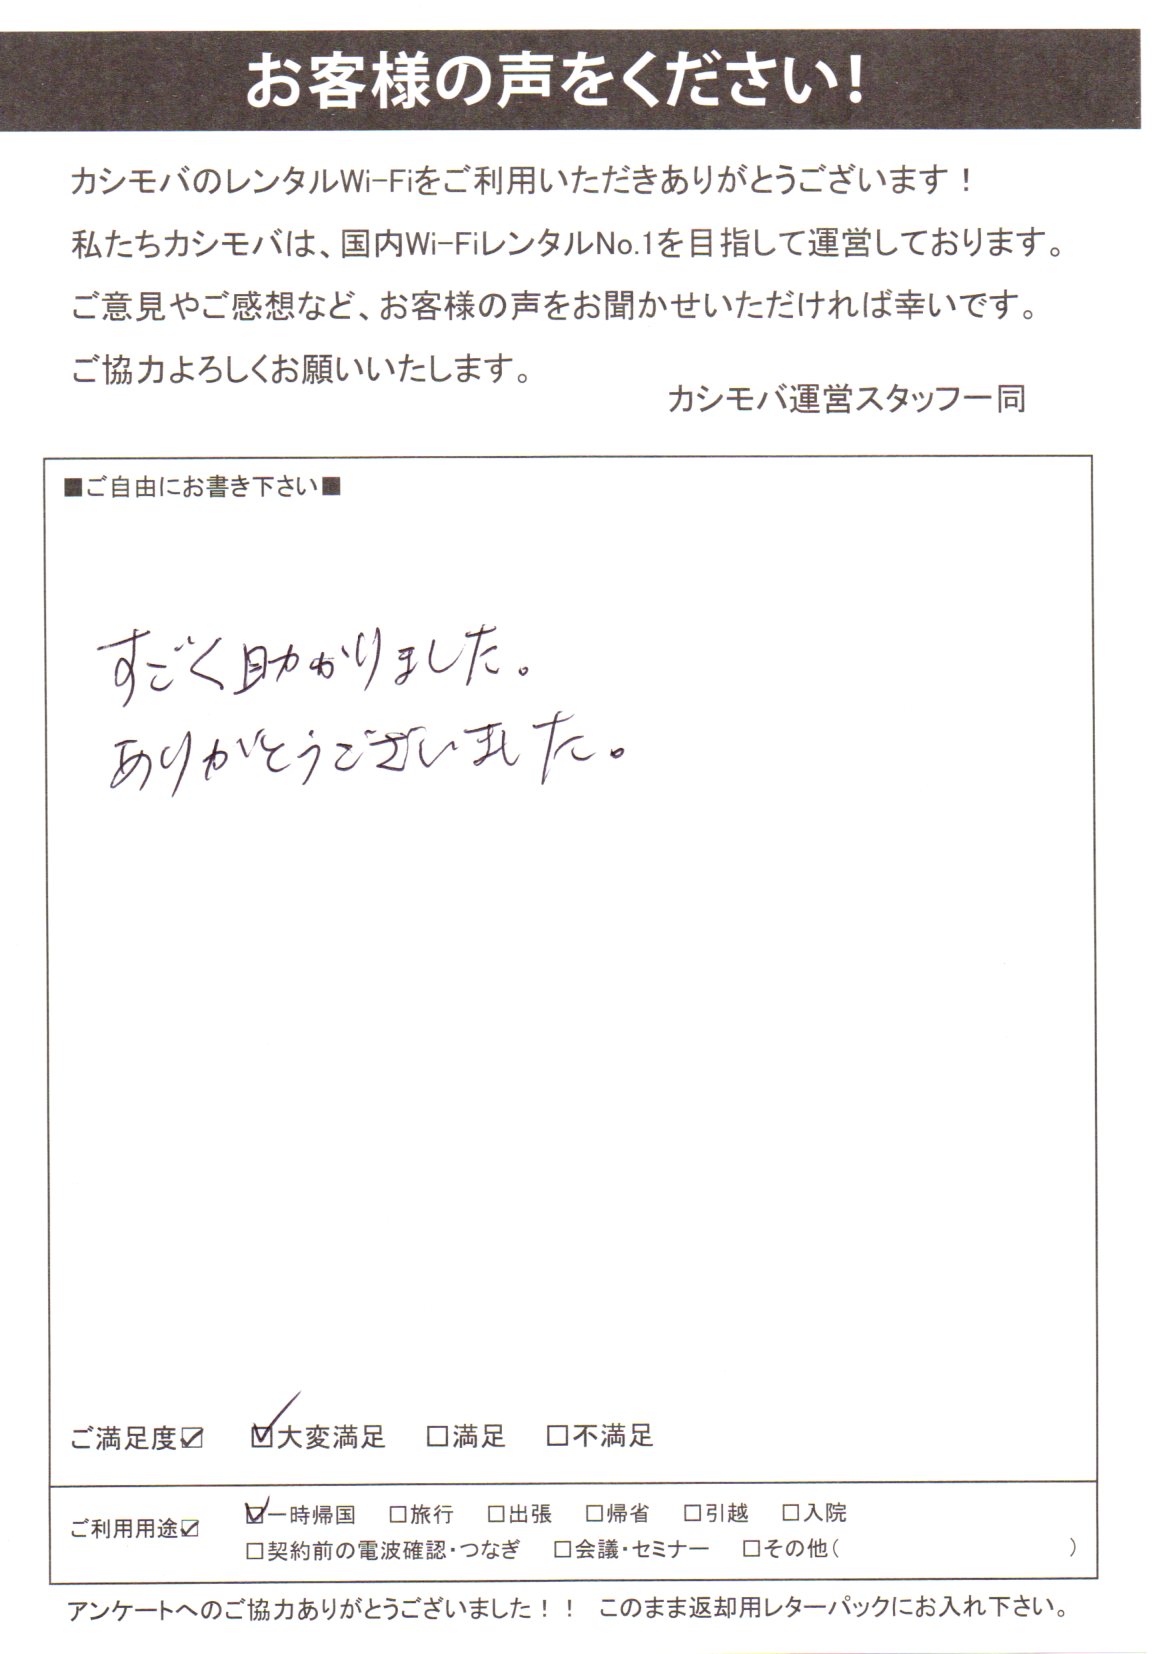 お客様の声をください!
カシモバのレンタルWi-Fiをご利用いただきありがとうございます！
私たちカシモバは、国内Wi-FiレンタルNo.1を目指して運営しております。
ご意見やご感想など、お客様の声をお聞かせいただければ幸いです。
ご協力よろしくお願いいたします。
カシモバ運営スタッフ一同
■ご自由にお書き下さい■
すごく助かりました。
ありがとうございました。
ご満足度☑ ☑大変満足 □満足 □不満足
ご利用用途☑ ☑一時帰国 □旅行 □出張 □帰省 □引越 □入院
□契約前の電波確認・つなぎ □会議・セミナー □その他( )
アンケートへのご協力ありがとうございました！！ このまま返却用レターパックにお入れ下さい。